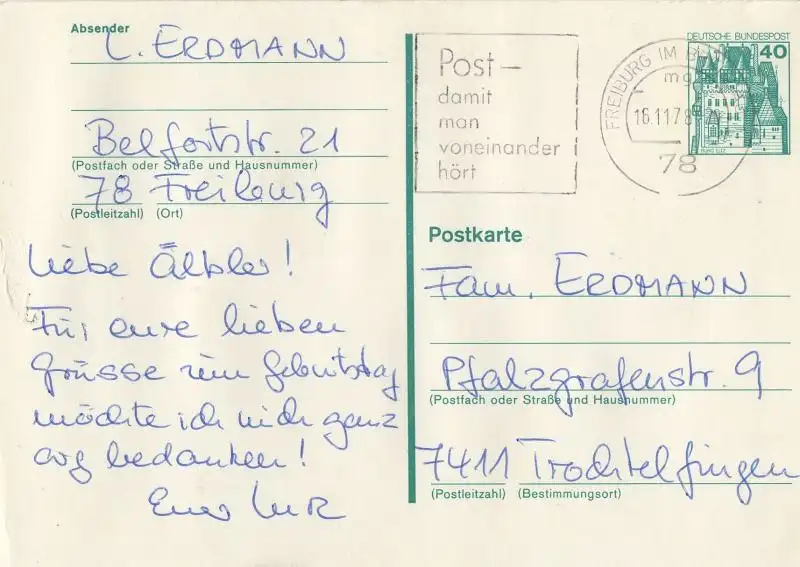 Absender
L. ERDMANN
Belfortstr. 21
(Postfach oder Straße und Hausnummer)
78 Freiburg
(Postleitzahl) (Ort)
Liebe Älbler!
Für eure lieben
Grüsse zum Geburtstag
möchte ich mich ganz
arg bedanken!
Euer
Post –
damit
man
voneinander
hört
FREIBURG IM
16.11.78
78
DEUTSCHE BUNDESPOST
40
BURG ELTZ
Postkarte
Fam. ERDMANN
Pfalzgrafenstr. 9
(Postfach oder Straße und Hausnummer)
7411 Trochtelfingen
(Postleitzahl) (Bestimmungsort)